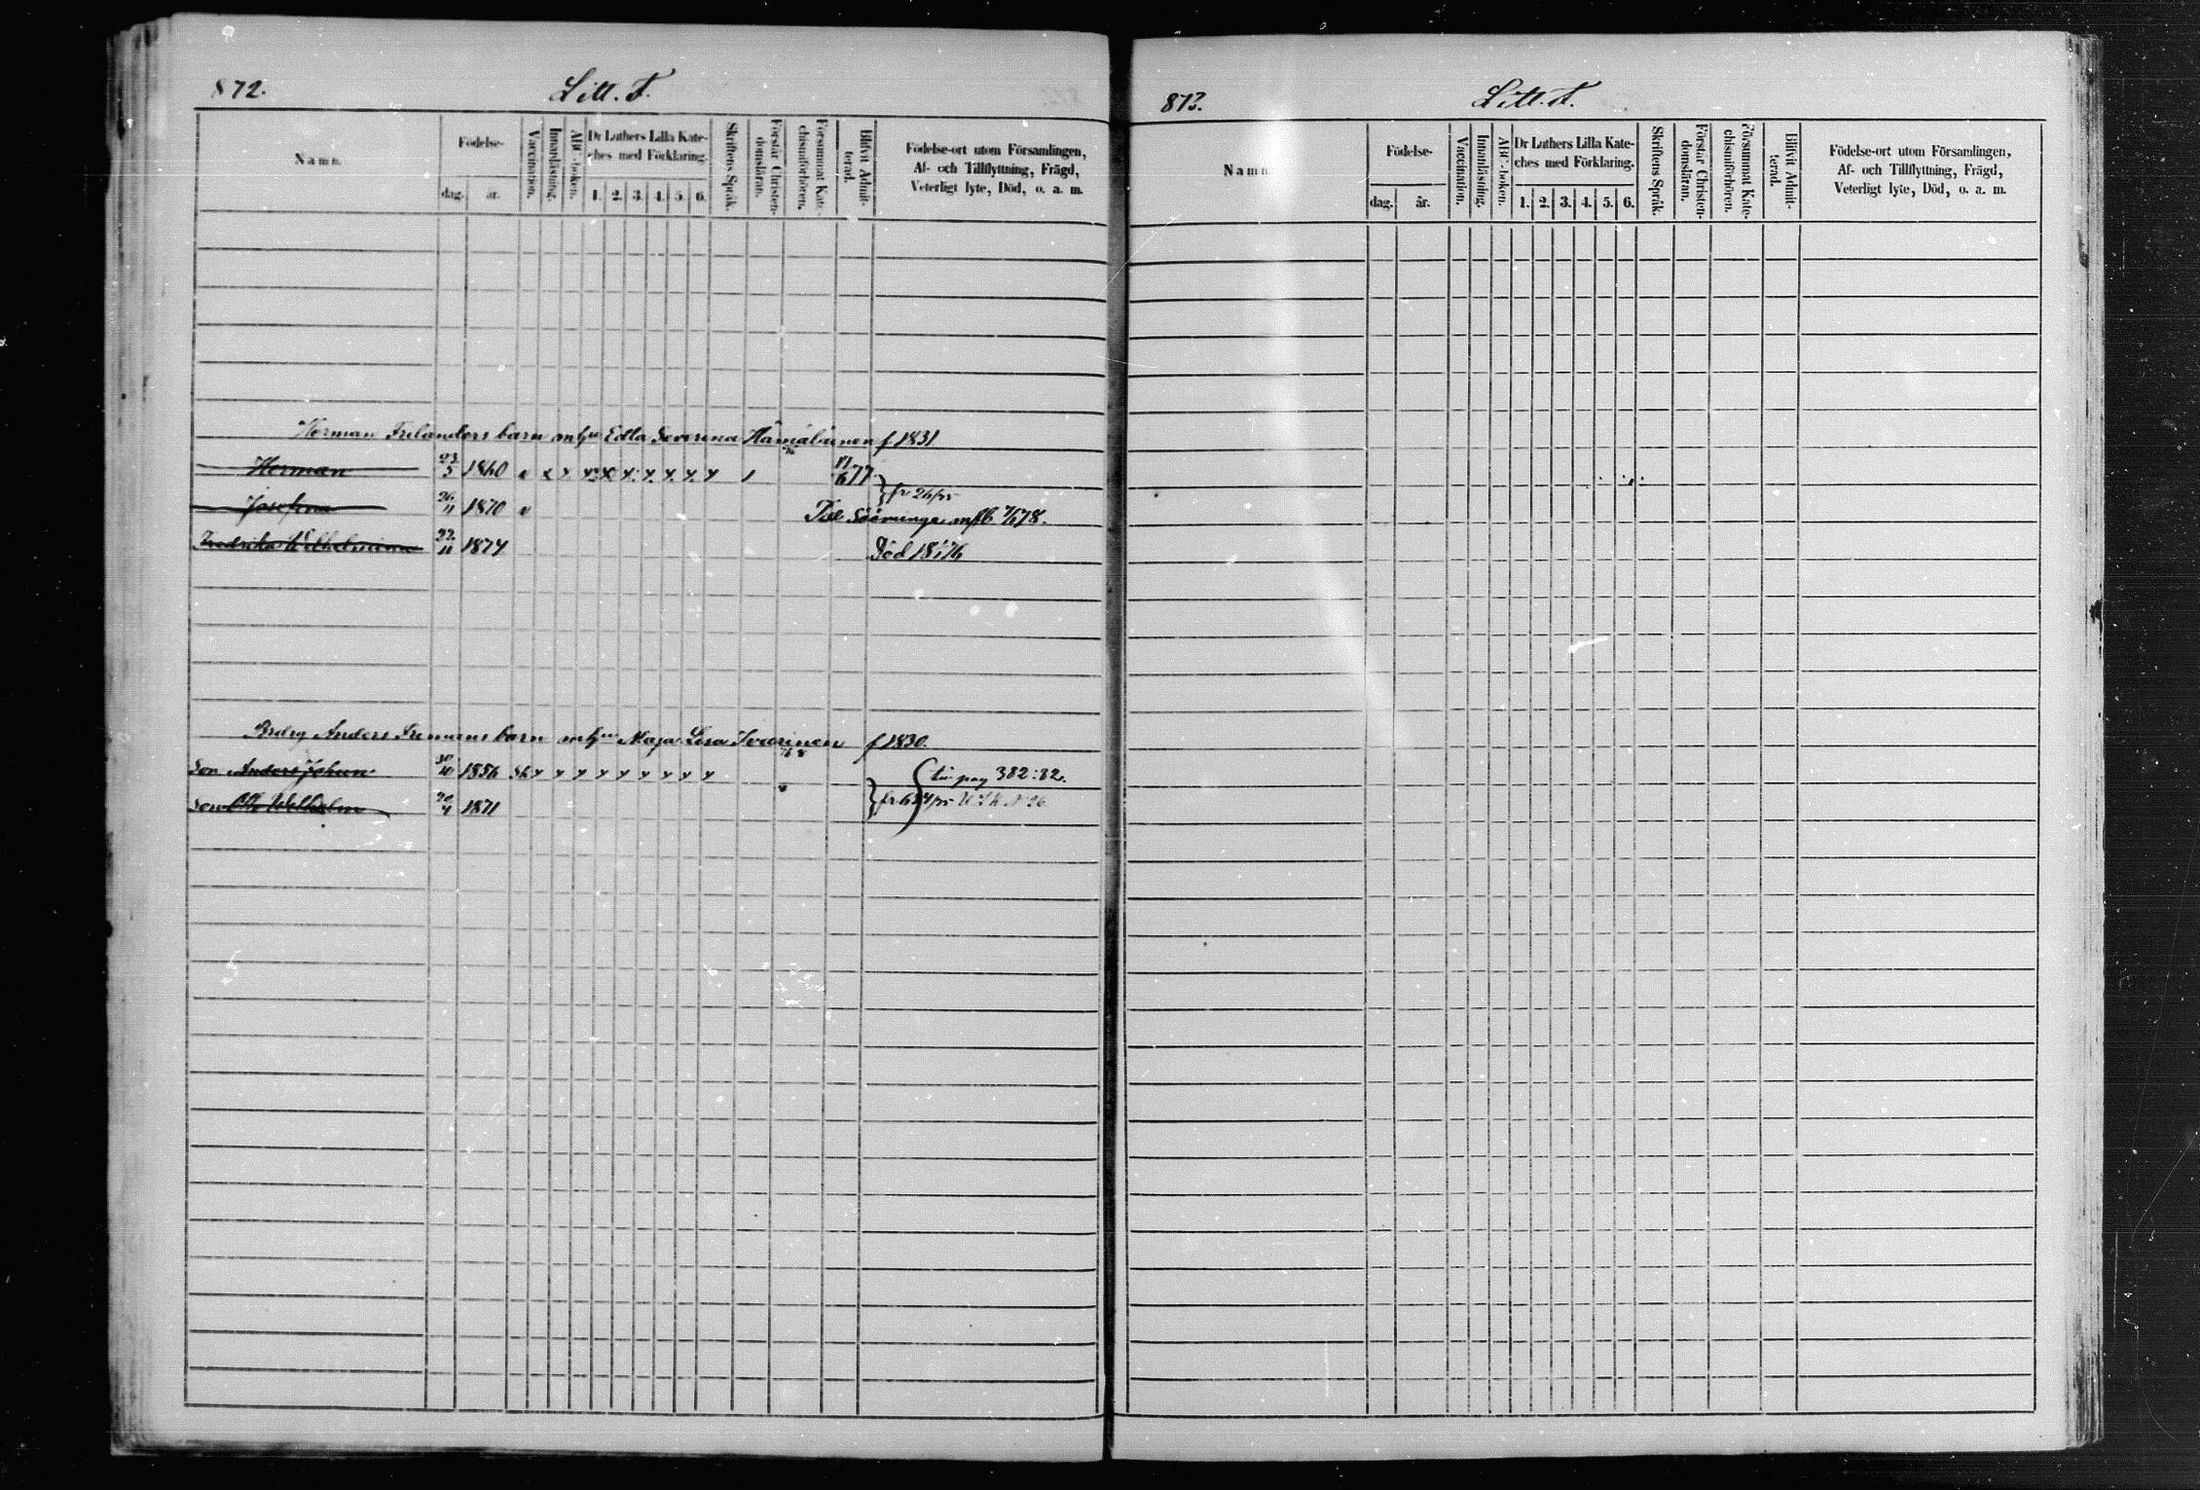 872.
Litt. F.
Namn.
Födelse-
dag. år.
Vaccination.
Innanläsning.
ABC-boken.
Dr Luthers Lilla Kate-
ches med Förklaring.
1. 2. 3. 4. 5. 6.
Skriftens Språk.
Förstår Christen-
domsläran.
Försummat Kate-
chismiförhören.
Blifvit Admit-
terad.
Födelse-ort utom Församlingen,
Af- och Tillflyttning, Frägd,
Veterligt lyte, Död, o. a. m.
Herman Frilanders barn m hu Edla Severina Hämäläinen f 1831
Herman 23/5 1860 v x x x x x x x x x 1 17/6 77.
Josefina 26/11 1870 v fr 26/75
Till Säminge m fb 7/1 78.
Fredrika Wilhelmina 22/11 1874 Död 18 76
Anders Fremans barn m hu Maja Lisa Ivarinen f 1830.
Son Anders Johan 30/10 1856 x x x x x x x x x pag 382:82.
Son Otto Wilhelm 20/4 1871
813.
Litt. F.
Namn
Födelse-
dag. år.
Vaccination.
Innanläsning.
ABC-boken.
Dr Luthers Lilla Kate-
ches med Förklaring.
1. 2. 3. 4. 5. 6.
Skriftens Språk.
Förstår Christen-
domsläran.
Försummat Kate-
chismiförhören.
Blifvit Admit-
terad.
Födelse-ort utom Församlingen,
Af- och Tillflyttning, Frägd,
Veterligt lyte, Död, o. a. m.